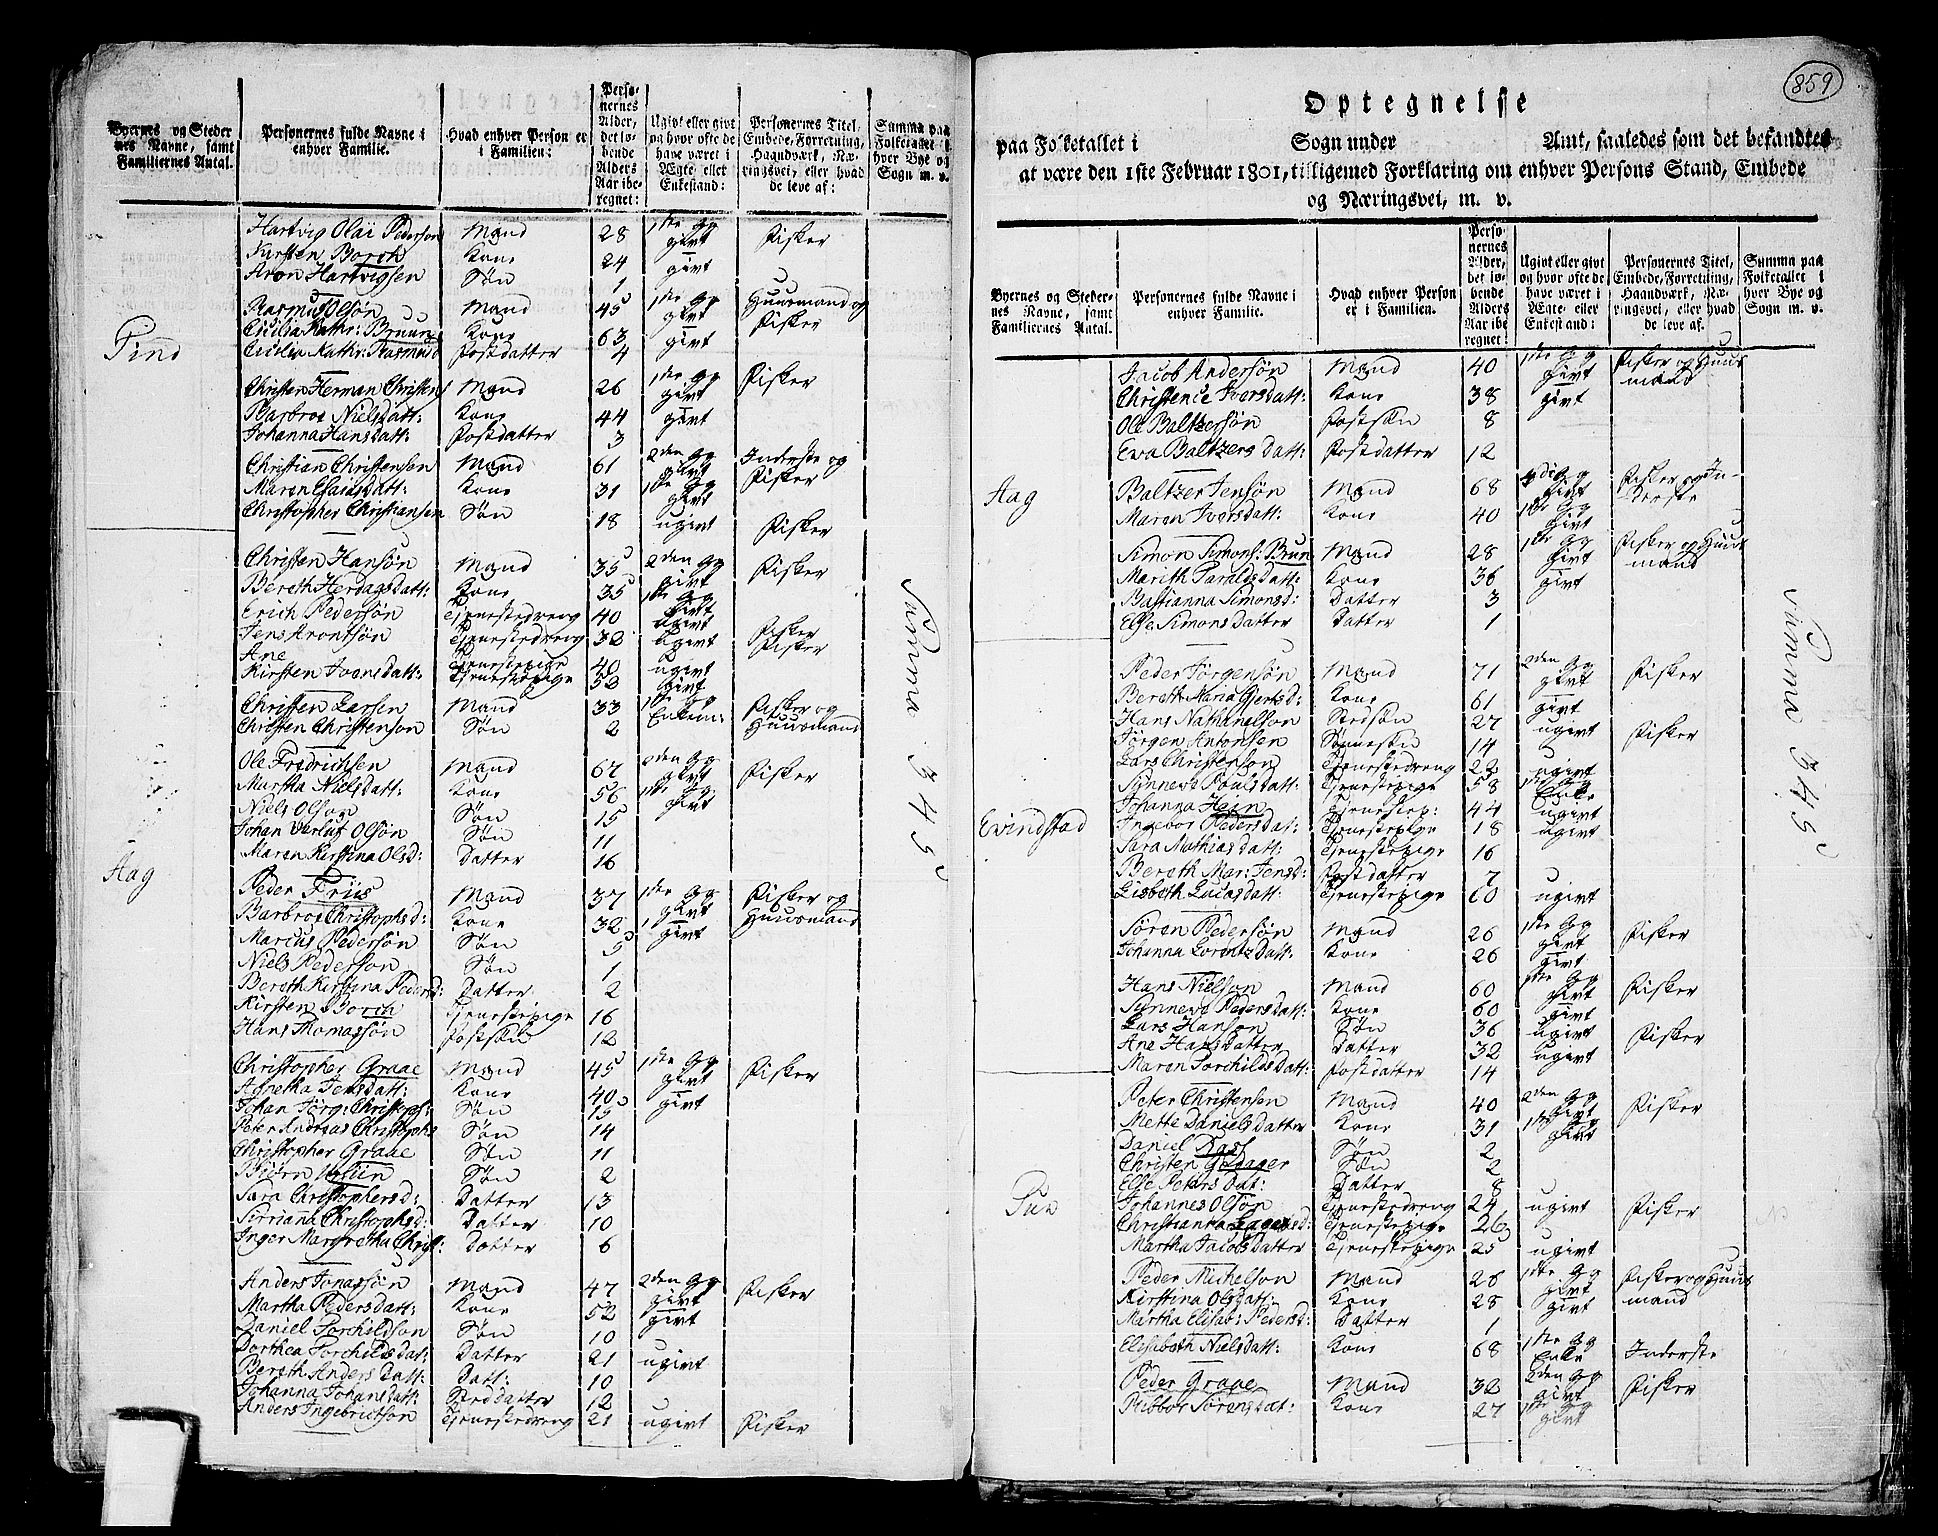 Byernes og Steder
nes Navne, samt
Familiernes Antal.
Personernes fulde Navne i
enhver Familie.
Hvad enhver Person er
i Familien:
Perso-
nernes
Alder,
det lø-
bende
Alders
Aar ibe-
regnet:
Ugivt eller givt
og hvor ofte de
have været i
Ægte eller
Enkestand:
Personernes Titel,
Embede, Forretning,
Haandværk, Næ-
ringsvei, eller hvad
de leve af:
Summa paa
Folketallet i
hver Bye og
Sogn m. v.
Hartvig Olai Pederson Mand 28 1ste Gg givt Fisker
Kirsten Borch Kone 24 givt
Aron Hartvigsen Søn 1
Rasmus Olsøn Mand 45 1ste Gg givt Huusmand og Fisker
Cicilia Kathr: Bruun Kone 63 givt
Cicilia Kathr: Rasmusd Fostdatter 4
Tind
Christen Herman Christens Mand 26 1ste Gg givt Fisker
Barbroe Nielsdatt: Kone 44 givt
Johanna Hansdatt: Fostdatter 3
Christian Christensen Mand 61 2den Gg givt Inderste og Fisker
Maren Esaiasdatt: Kone 31 1ste Gg givt
Christopher Christiansen Søn 18 ugivt Fisker
Christen Hansøn Mand 35 2den Gg givt Fisker
Bereth Herdagsdatt: Kone 35 1ste Gg givt
Erich Pedersøn Tjenestedreng 40 ugivt Fisker
Jens Arontsøn Tjenestedreng 38 ugivt Fisker
Ane Tjenestepige 40 ugivt
Kirsten Iversdatt: Tjenestepige 58 ugivt
Christen Larsen Mand 33 1ste Gg Enkem: Fisker og Huusmand
Christen Christenson Søn 2
Ole Fredrichsen Mand 67 2den Gg givt Fisker
Martha Nielsdatt: Kone 56 1ste Gg givt
Niels Olson Søn 15
Johan Olsøn Søn 11
Maren Kirstina Olsd: Datter 16
Aag
Peder Friis Mand 37 1ste Gg givt Fisker og Huusmand
Barbroe Christophsd: Kone 32 givt
Marcus Pedersøn Søn 5
Niels Pederson Søn 1
Bereth Kirstina Pedersd: Datter 2
Kirsten Borch Tjenestepige 16
Hans Thomassøn Fostsøn 12
Christopher Graae Mand 45 1ste Gg givt Fisker
Agnetha Jensdatt: Kone 40 givt
Johan Jörg: Christophs: Søn 15
Peter Andreas Christophs Søn 14
Christopher Graae Søn 11
Biørn Søn 2
Sara Christophersd: Datter 13
Sirrianna Christophsd: Datter 10
Inger Margretha Christ: Datter 6
Anders Jonassøn Mand 47 2den Gg givt Fisker
Martha Pedersdatt: Kone 52 givt
Daniel Torchildson Søn 10
Dorthea Torchildsdat: Datter 21 ugivt
Bereth Anders Datt: Datt: 10
Johanna Johansdatt: Steddatter 12
Anders Ingebrictson Tjenestedreng 21 ugivt Fisker
Summa 345
859
Optegnelse
paa Folketallet i Sogn under Amt, saaledes som det befandtes
at være den 1ste Februar 1801, tilligemed Forklaring om enhver Persons Stand, Embede
og Næringsvei, m. v.
Byernes og Steder-
nes Navne, samt
Familiernes Antal.
Personernes fulde Navne i
enhver Familie.
Hvad enhver Person
er i Familien.
Perso-
nernes
Alder,
det lø-
bende
Alders
Aar ibe
regnet:
Ugivt eller givt
og hvor ofte de
have været i
Ægte- eller
Enkestand:
Personernes Titel,
Embede, Forretning,
Haandværk, Næ-
ringsvei, eller hvad
de leve af.
Summa paa
Folketallet i
hver Bye og
Sogn m. v.
Jacob Andersøn Mand 40 1ste Gg givt Fisker og Huusmand
Christence Iversdatt: Kone 38 givt
Ole Baltzersøn Fostsøn 8
Ewa Baltzersdatt: Fostdatter 12
Aag
Baltzer Jensøn Mand 68 Gg givt Fisker og Inderste
Maren Iversdatt: Kone 40 1ste Gg givt
Simon Simons: Brun Mand 28 1ste Gg givt Fisker og Huusmand
Marith Taraldsdatt: Kone 36 givt
Bastianna Simonsd: Datter 3
Else Simonsdatter Datter 1
Peder Jörgensøn Mand 71 2den Gg givt Fisker
Bereth Maria Gjertsd: Kone 61 givt
Hans Nathanelson Stedsøn 27 ugivt Fisker
Jörgen Antonsen Sønnesøn 14
Lars Christenson Tjenestedreng 23 ugivt
Synneve Poulsdatt: Tjenestepige 58 1ste Gg Enke
Johanna Hein Tjenestep: 44 ugivt
Evindstad
Ingebor Pedersdat: Tjenestepige 18 ugivt
Sara Mathiasdatt: Tjenestepige 16
Bereth Mar: Jensd: Fostdatter 7
Lisbeth Lucasdatt: Tjenestepige 60 ugivt
Søren Pedersøn Mand 26 1ste Gg givt Fisker
Johanna Lorentzdatt: Kone 26 givt
Hans Nielson Mand 60 1ste Gg givt Fisker
Sunneve Pedersdatt: Kone 60 givt
Lars Hanson Søn 36 ugivt Fisker
Ane Hansdatter Datter 32 ugivt
Maren Torchildsdatt: Fostdatter 14
Peter Christensen Mand 40 2den Gg givt Fisker
Mette Danielsdatter Kone 31 1ste Gg givt
Daniel Søn 2
Christen Søn 2
Else Peters Dat: Datter 8
Tuv
Johannes Olsøn Tjenestedreng 24 ugivt Fisker
Christianna Tjenestepige 26
Martha Jacobsdatter Tjenestepige 25 ugivt
Peder Michelson Mand 26 1ste Gg givt Fisker og Huusmand
Kirstina Olsdatt: Kone 28 givt
Martha Elisab: Pedersd: Datter 1
Elisabeth Nielsdatt: Kone 68 1ste Gg Enke Inderste
Peder Graae Mand 32 2den Gg givt Fisker
Ribbor Sörensdat: Kone 27 1ste Gg givt
Summa 345